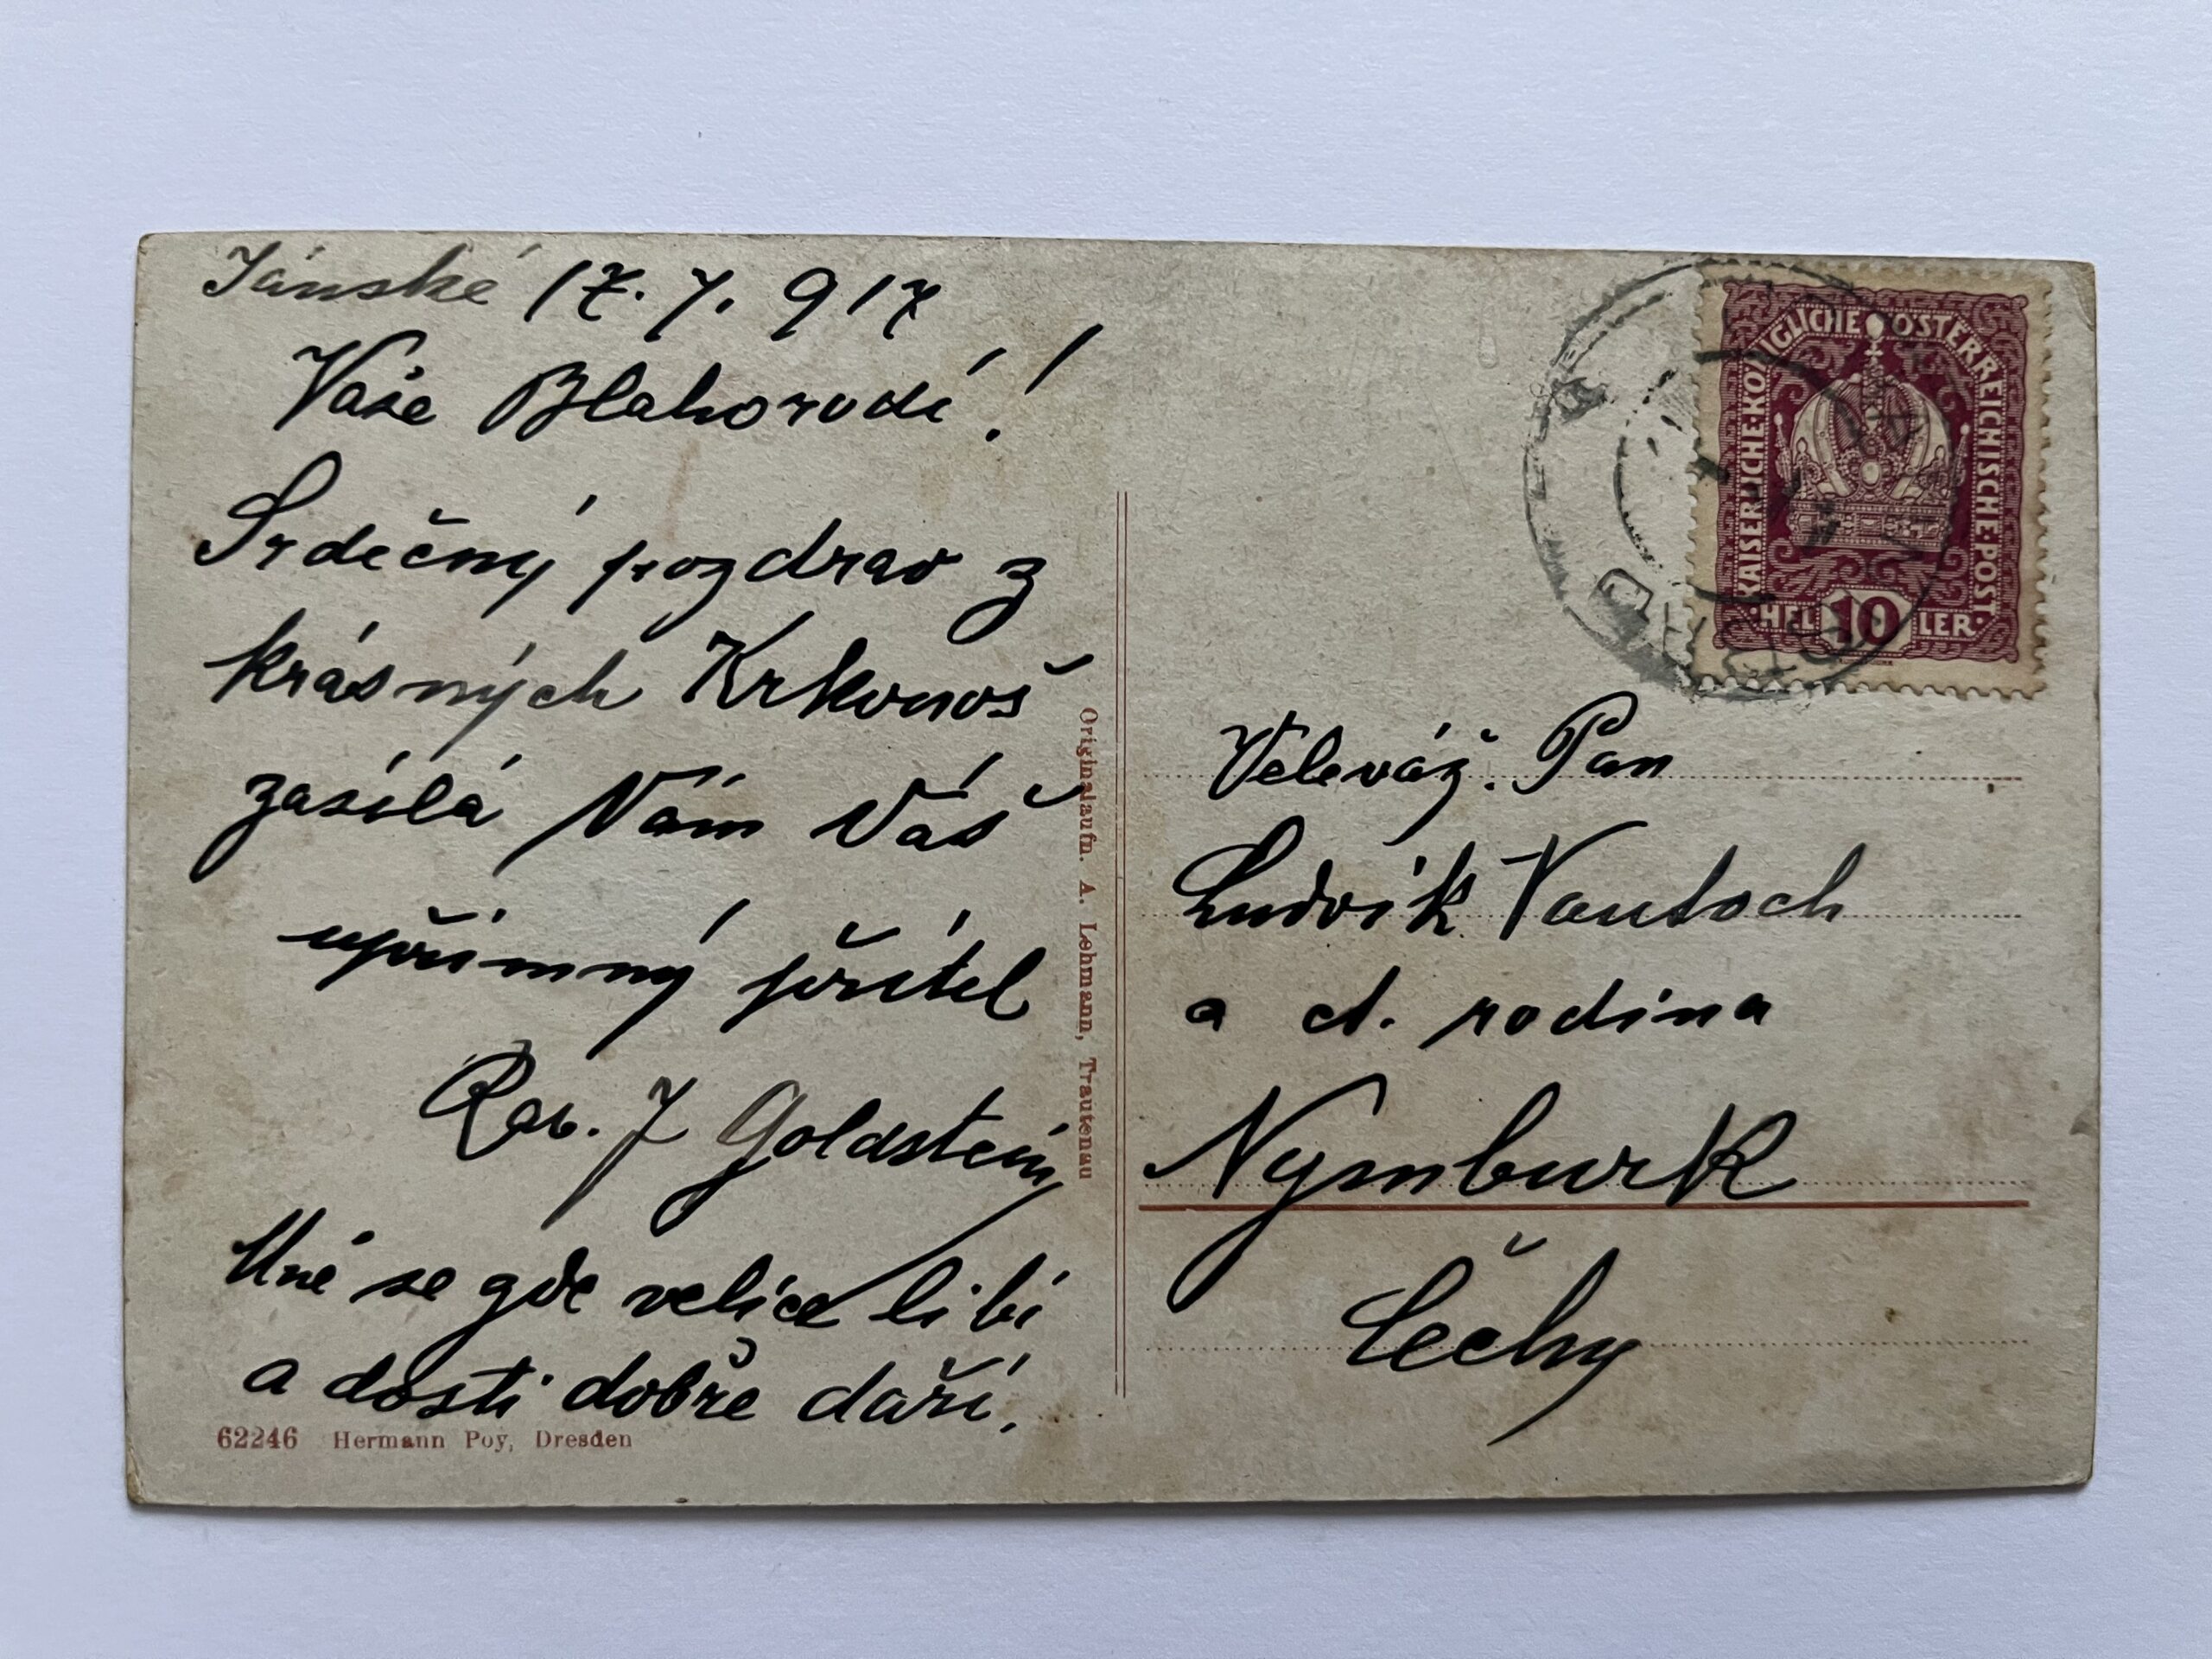 Jánské 17. 7. 917
Vaše Blahorodí!
Srdečný pozdrav z
krásných Krkonoš
zasílá Vám Váš
upřímný přítel
Rab. J Goldstein
Mně se zde velice líbí
a dosti dobře daří.
62246 Hermann Poy, Dresden
Originalaufn. A. Lehmann, Trautenau
KAISERLICHE KÖNIGLICHE ÖSTERREICHISCHE POST
HELLER 10
Veleváž. Pan
Ludvík Vantoch
a ct. rodina
Nymburk
Čechy